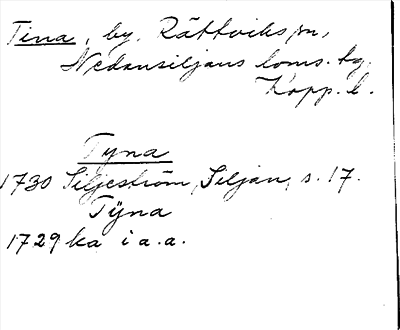 Tina, by. Rättviks sn,
Nedansiljans doms. tg.
Kopp. l.
Tyna
1730 Siljeström, Siljan, s. 17.
Tÿna
1729 ka i a.a.